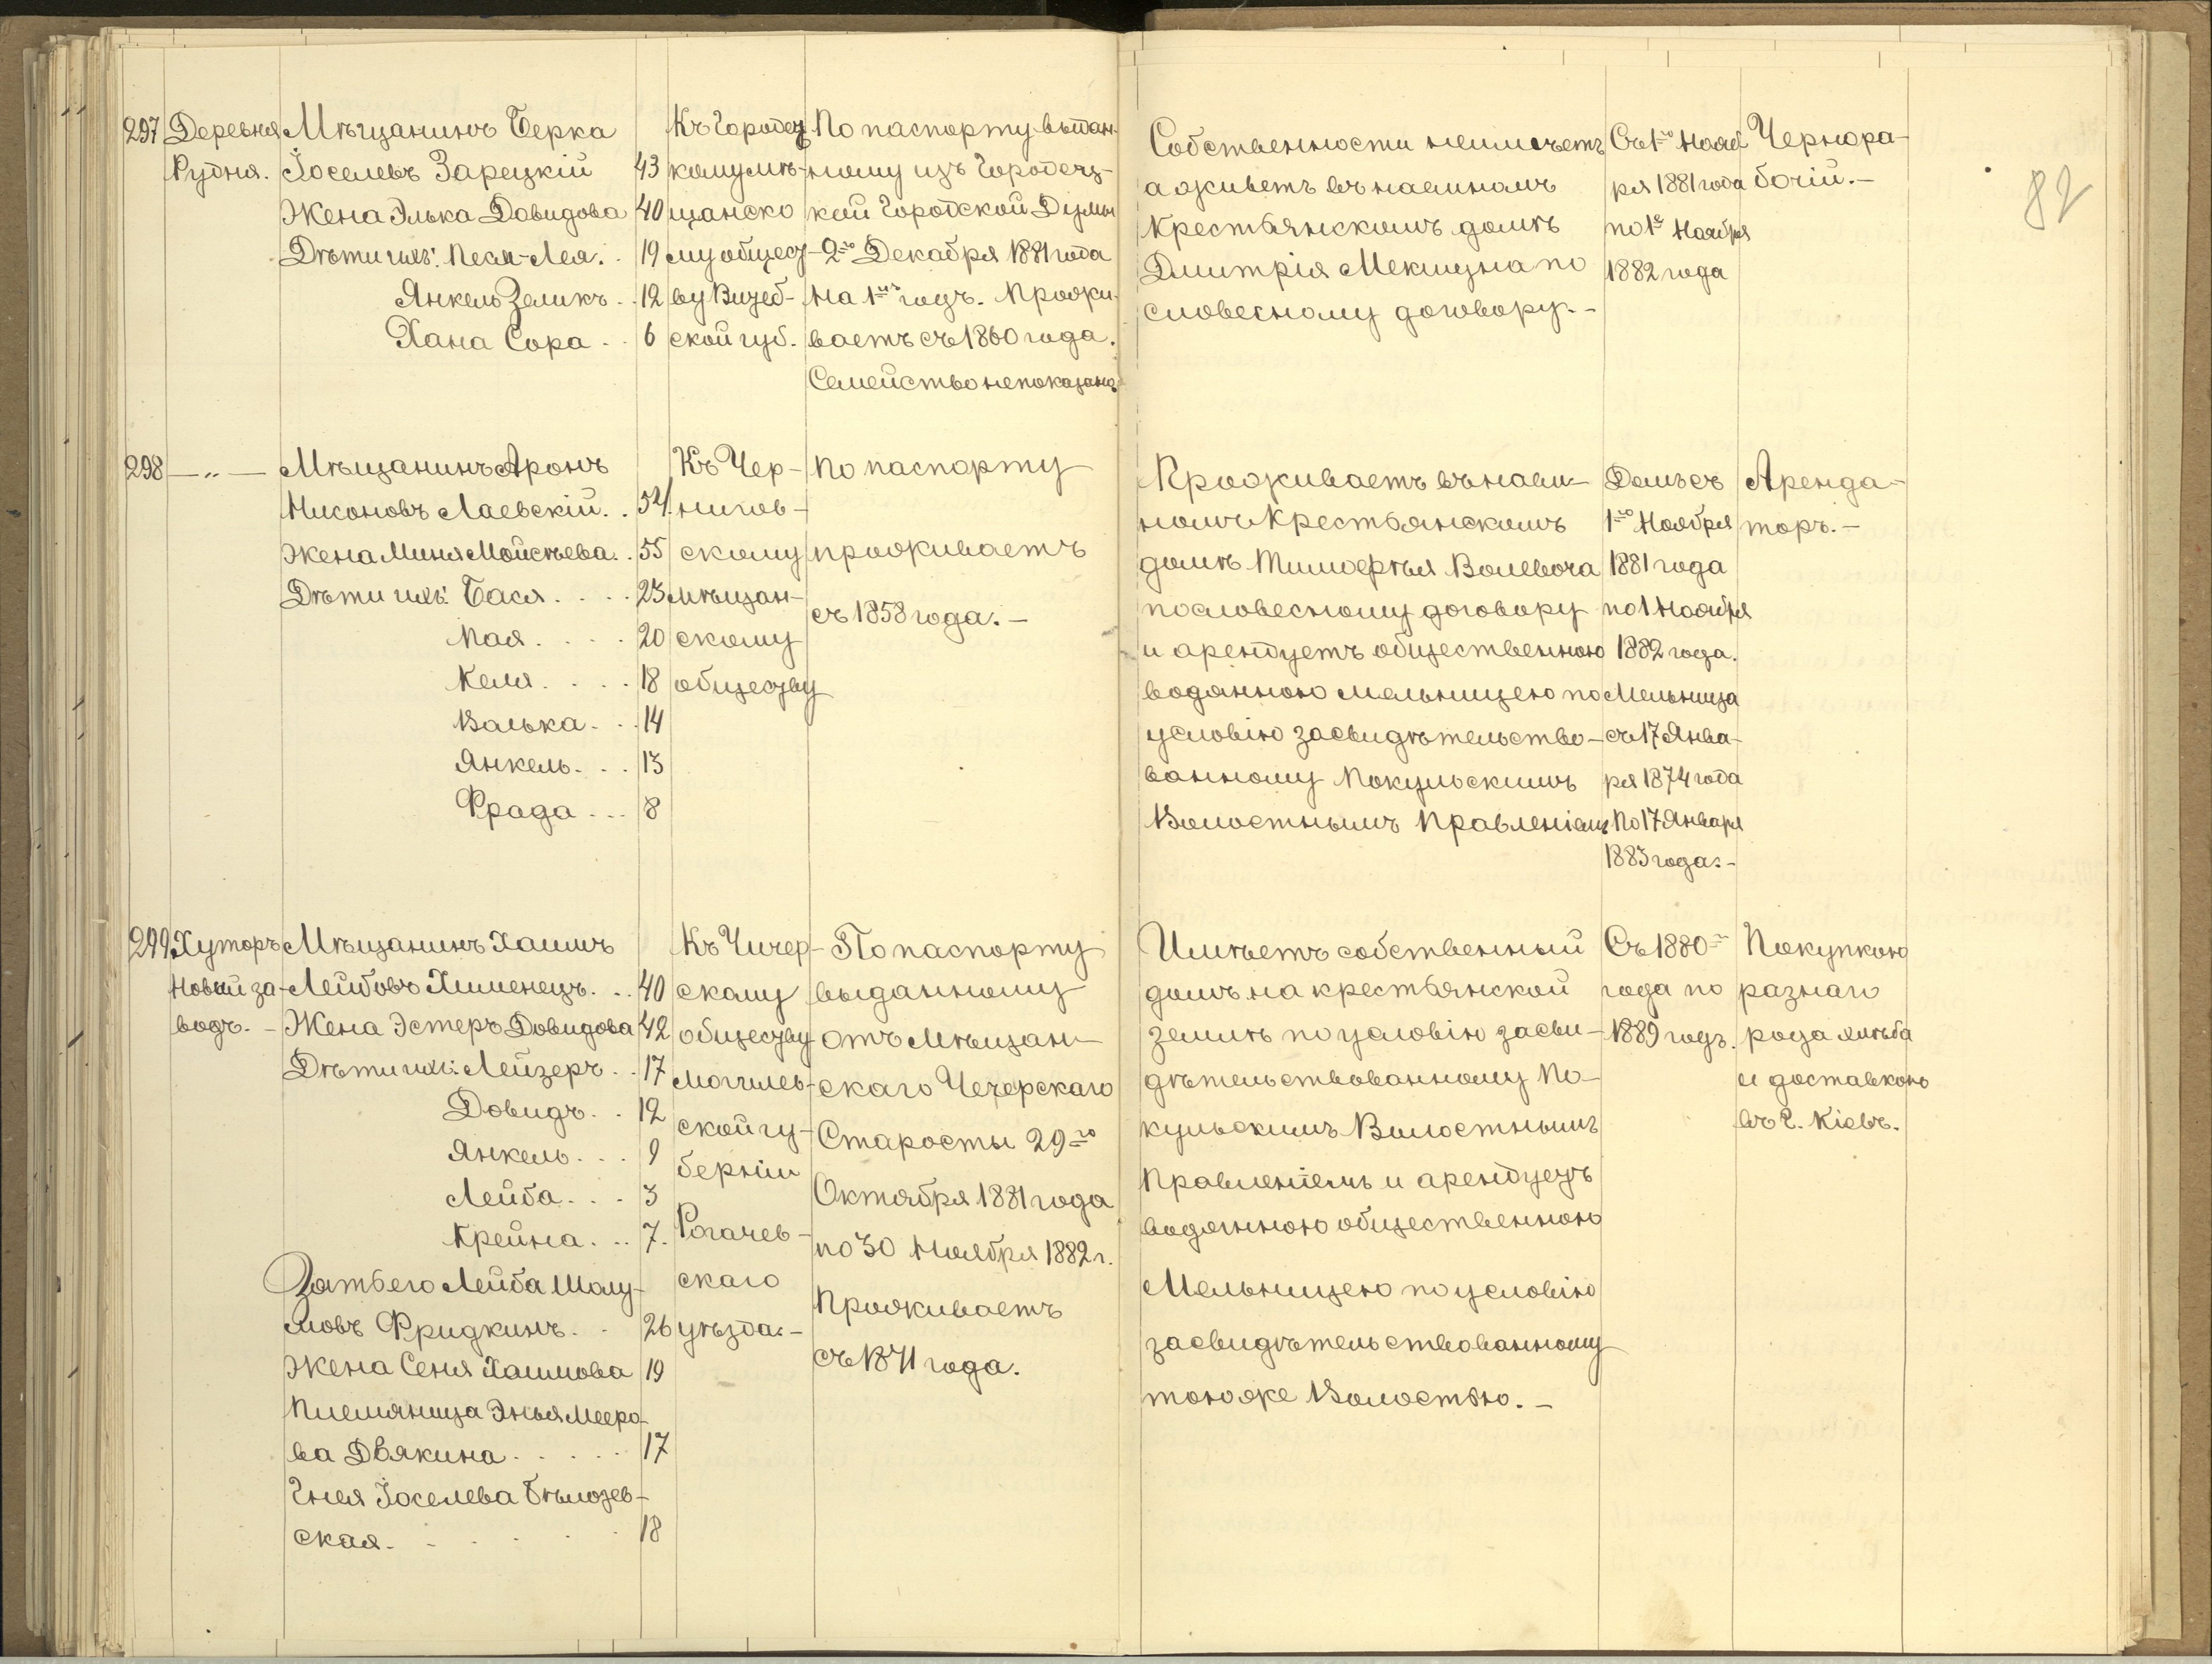 297
Деревня
Рудня.
Мѣщанинъ Берка
Іоселевъ Зарецкій 43
Жена Элька Довидова 40
Дѣти ихъ: Песя-Лея. . 19
Янкель Зеликъ . . 12
Хана Сора . . 6
Къ Городец
кому мѣ-
щанско
му общест
ву Витеб-
ской губ.
По паспорту выдан-
ному изъ Городец-
кой Городской Думы
2го Декабря 1881 года
на 1нъ годъ. Прожи-
ваетъ съ 1860 года.
Семейство непоказано.
Собственности неимѣетъ
а живетъ въ наемномъ
Крестьянскомъ домѣ
Дмитрія Мекшуна по
словесному договору. -
Съ 1го Нояб
ря 1881 года
по 1е Ноября
1882 года
Чернора-
бочій. -
82
298
— „ —
Мѣщанинъ Аронъ
Нисоновъ Лаевскій. . 54.
Жена Миня Мойсѣева. . 55
Дѣти ихъ: Бася . . . . 23
Пая . . . . 20
Келя . . . . 18
Валька . . . 14
Янкель . . . 13
Фрада . . . 8
Къ Чер-
нигов-
скому
мѣщан-
скому
обществу
По паспорту
проживаетъ
съ 1858 года. -
Проживаетъ въ наем-
номъ Крестьянскомъ
домѣ Тимоѳѣя Волевоча
по словесному договору
и арендуетъ общественною
водянною мельницею по
условію засвидѣтельство-
ванному Покульскимъ
Волостнымъ Правленіемъ
Домъ съ
1го Ноября
1881 года
по 1 Ноября
1882 года.
Мельница
съ 17 Янва-
ря 1874 года
По 17 Января
1883 года. -
Аренда-
торъ. -
299
Хуторъ
Новый за-
водъ. -
Мѣщанинъ Хаимъ
Лейбовъ Хименецъ. . . 40
Жена Эстеръ Довидова 42
Дѣти ихъ: Лейзеръ . . 17
Довидъ . . 12
Янкель . . . 9
Лейба . . . 3
Крейна . . . 7.
Зять его Лейба Шолу-
мовъ Фридкинъ. . 26
Жена Сеня Хаимова 19
Племяница Энья Мееро-
ва Двякина . . . . . 17
Гнея Іоселева Бѣлозев-
ская . . . . . . 18
Къ Чичер-
скому
обществу
Могилев-
ской гу-
берніи
Рогачев-
скаго
уѣзда. -
По паспорту
выданному
отъ Мѣщан-
скаго Чечерскаго
Старосты 29го
Октября 1881 года
по 30 Ноября 1882 г.
Проживаетъ
съ 1871 года.
Имѣетъ собственный
домъ на крестьянской
землѣ по условію засви-
дѣтельствованному По-
кульскимъ Волостнымъ
Правленіемъ и арендуетъ
водянною общественною
Мельницею по условію
засвидѣтельствованному
тою же Волостью. -
Съ 1880го
года по
1889 годъ.
Покупкою
разнаго
рода хлѣба
и доставкою
въ г. Кіевъ.